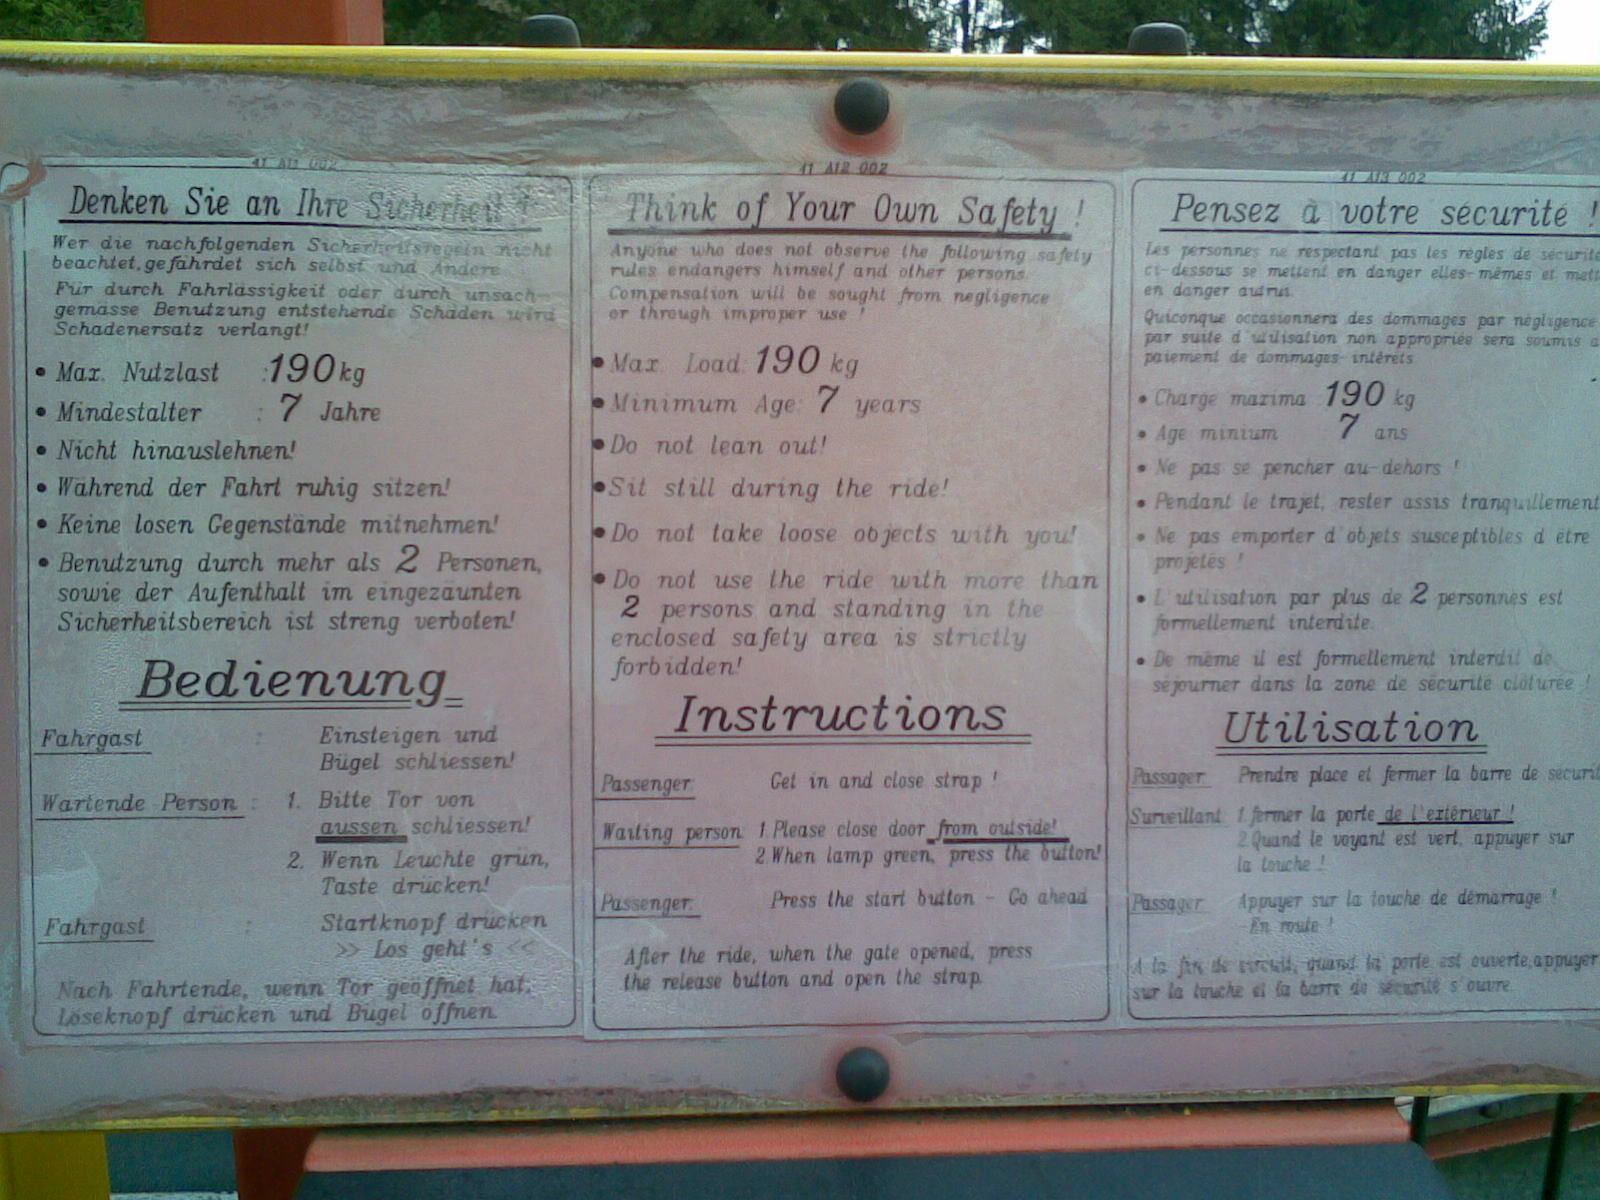 41 A11 002
Denken Sie an Ihre Sicherheit !
Wer die nachfolgenden Sicherheitsregeln nicht
beachtet, gefährdet sich selbst und Andere.
Für durch Fahrlässigkeit oder durch unsach-
gemässe Benutzung entstehende Schäden wird
Schadenersatz verlangt!
• Max. Nutzlast : 190 kg
• Mindestalter : 7 Jahre
• Nicht hinauslehnen!
• Während der Fahrt ruhig sitzen!
• Keine losen Gegenstände mitnehmen!
• Benutzung durch mehr als 2 Personen,
sowie der Aufenthalt im eingezäunten
Sicherheitsbereich ist streng verboten!
Bedienung
Fahrgast : Einsteigen und
Bügel schliessen!
Wartende Person : 1. Bitte Tor von
aussen schliessen!
2. Wenn Leuchte grün,
Taste drücken!
Fahrgast : Startknopf drücken
>> Los geht's <<
Nach Fahrtende, wenn Tor geöffnet hat,
Löseknopf drücken und Bügel öffnen.
41 A12 002
Think of Your Own Safety !
Anyone who does not observe the following safety
rules endangers himself and other persons.
Compensation will be sought from negligence
or through improper use !
• Max. Load: 190 kg
• Minimum Age: 7 years
• Do not lean out!
• Sit still during the ride!
• Do not take loose objects with you!
• Do not use the ride with more than
2 persons and standing in the
enclosed safety area is strictly
forbidden!
Instructions
Passenger: Get in and close strap !
Waiting person 1. Please close door from outside!
2. When lamp green, press the button!
Passenger: Press the start button - Go ahead
After the ride, when the gate opened, press
the release button and open the strap.
41 A13 002
Pensez à votre sécurité !
Les personnes ne respectant pas les règles de sécurité
ci-dessous se mettent en danger elles-mêmes et mett
en danger autrui.
Quiconque occasionnera des dommages par négligence
par suite d'utilisation non appropriée sera soumis a
paiement de dommages-intérêts
• Charge maxima : 190 kg
• Age minium 7 ans
• Ne pas se pencher au-dehors !
• Pendant le trajet, rester assis tranquillement
• Ne pas emporter d'objets susceptibles d être
projetés !
• L'utilisation par plus de 2 personnes est
formellement interdite.
• De même il est formellement interdit de
séjourner dans la zone de sécurité clôturée !
Utilisation
Passager Prendre place et fermer la barre de sécurit
Surveillant 1. fermer la porte de l'extérieur !
2. Quand le voyant est vert, appuyer sur
la touche !
Passager Appuyer sur la touche de démarrage !
En route !
A la fin de circuit, quand la porte est ouverte, appuyer
sur la touche et la barre de sécurité s'ouvre.